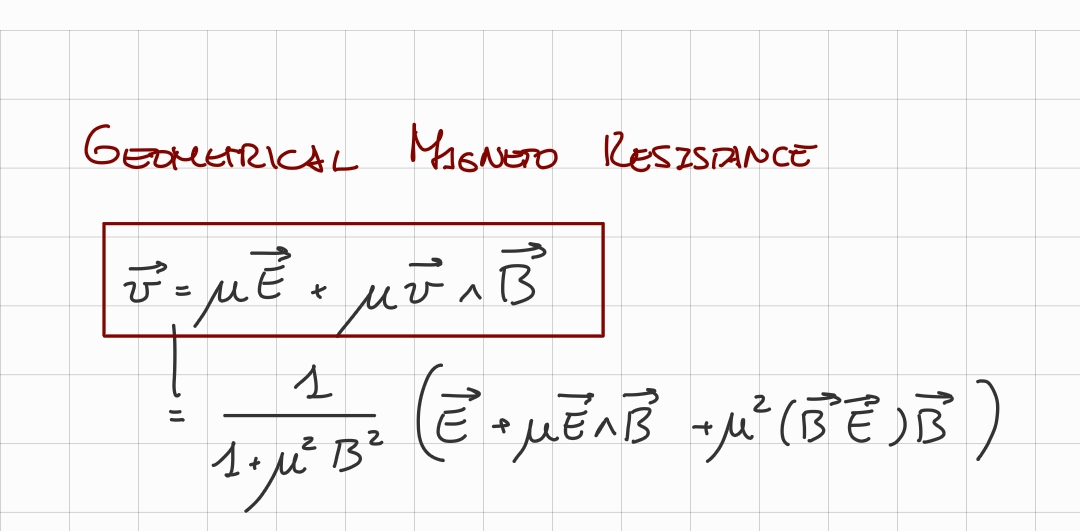 GEOMETRICAL MAGNETO RESISTANCE
$\vec{v} = \mu \vec{E} + \mu \vec{v} \wedge \vec{B}$
$= \frac{1}{1 + \mu^2 B^2} \left( \vec{E} + \mu \vec{E} \wedge \vec{B} + \mu^2 (\vec{B} \vec{E}) \vec{B} \right)$